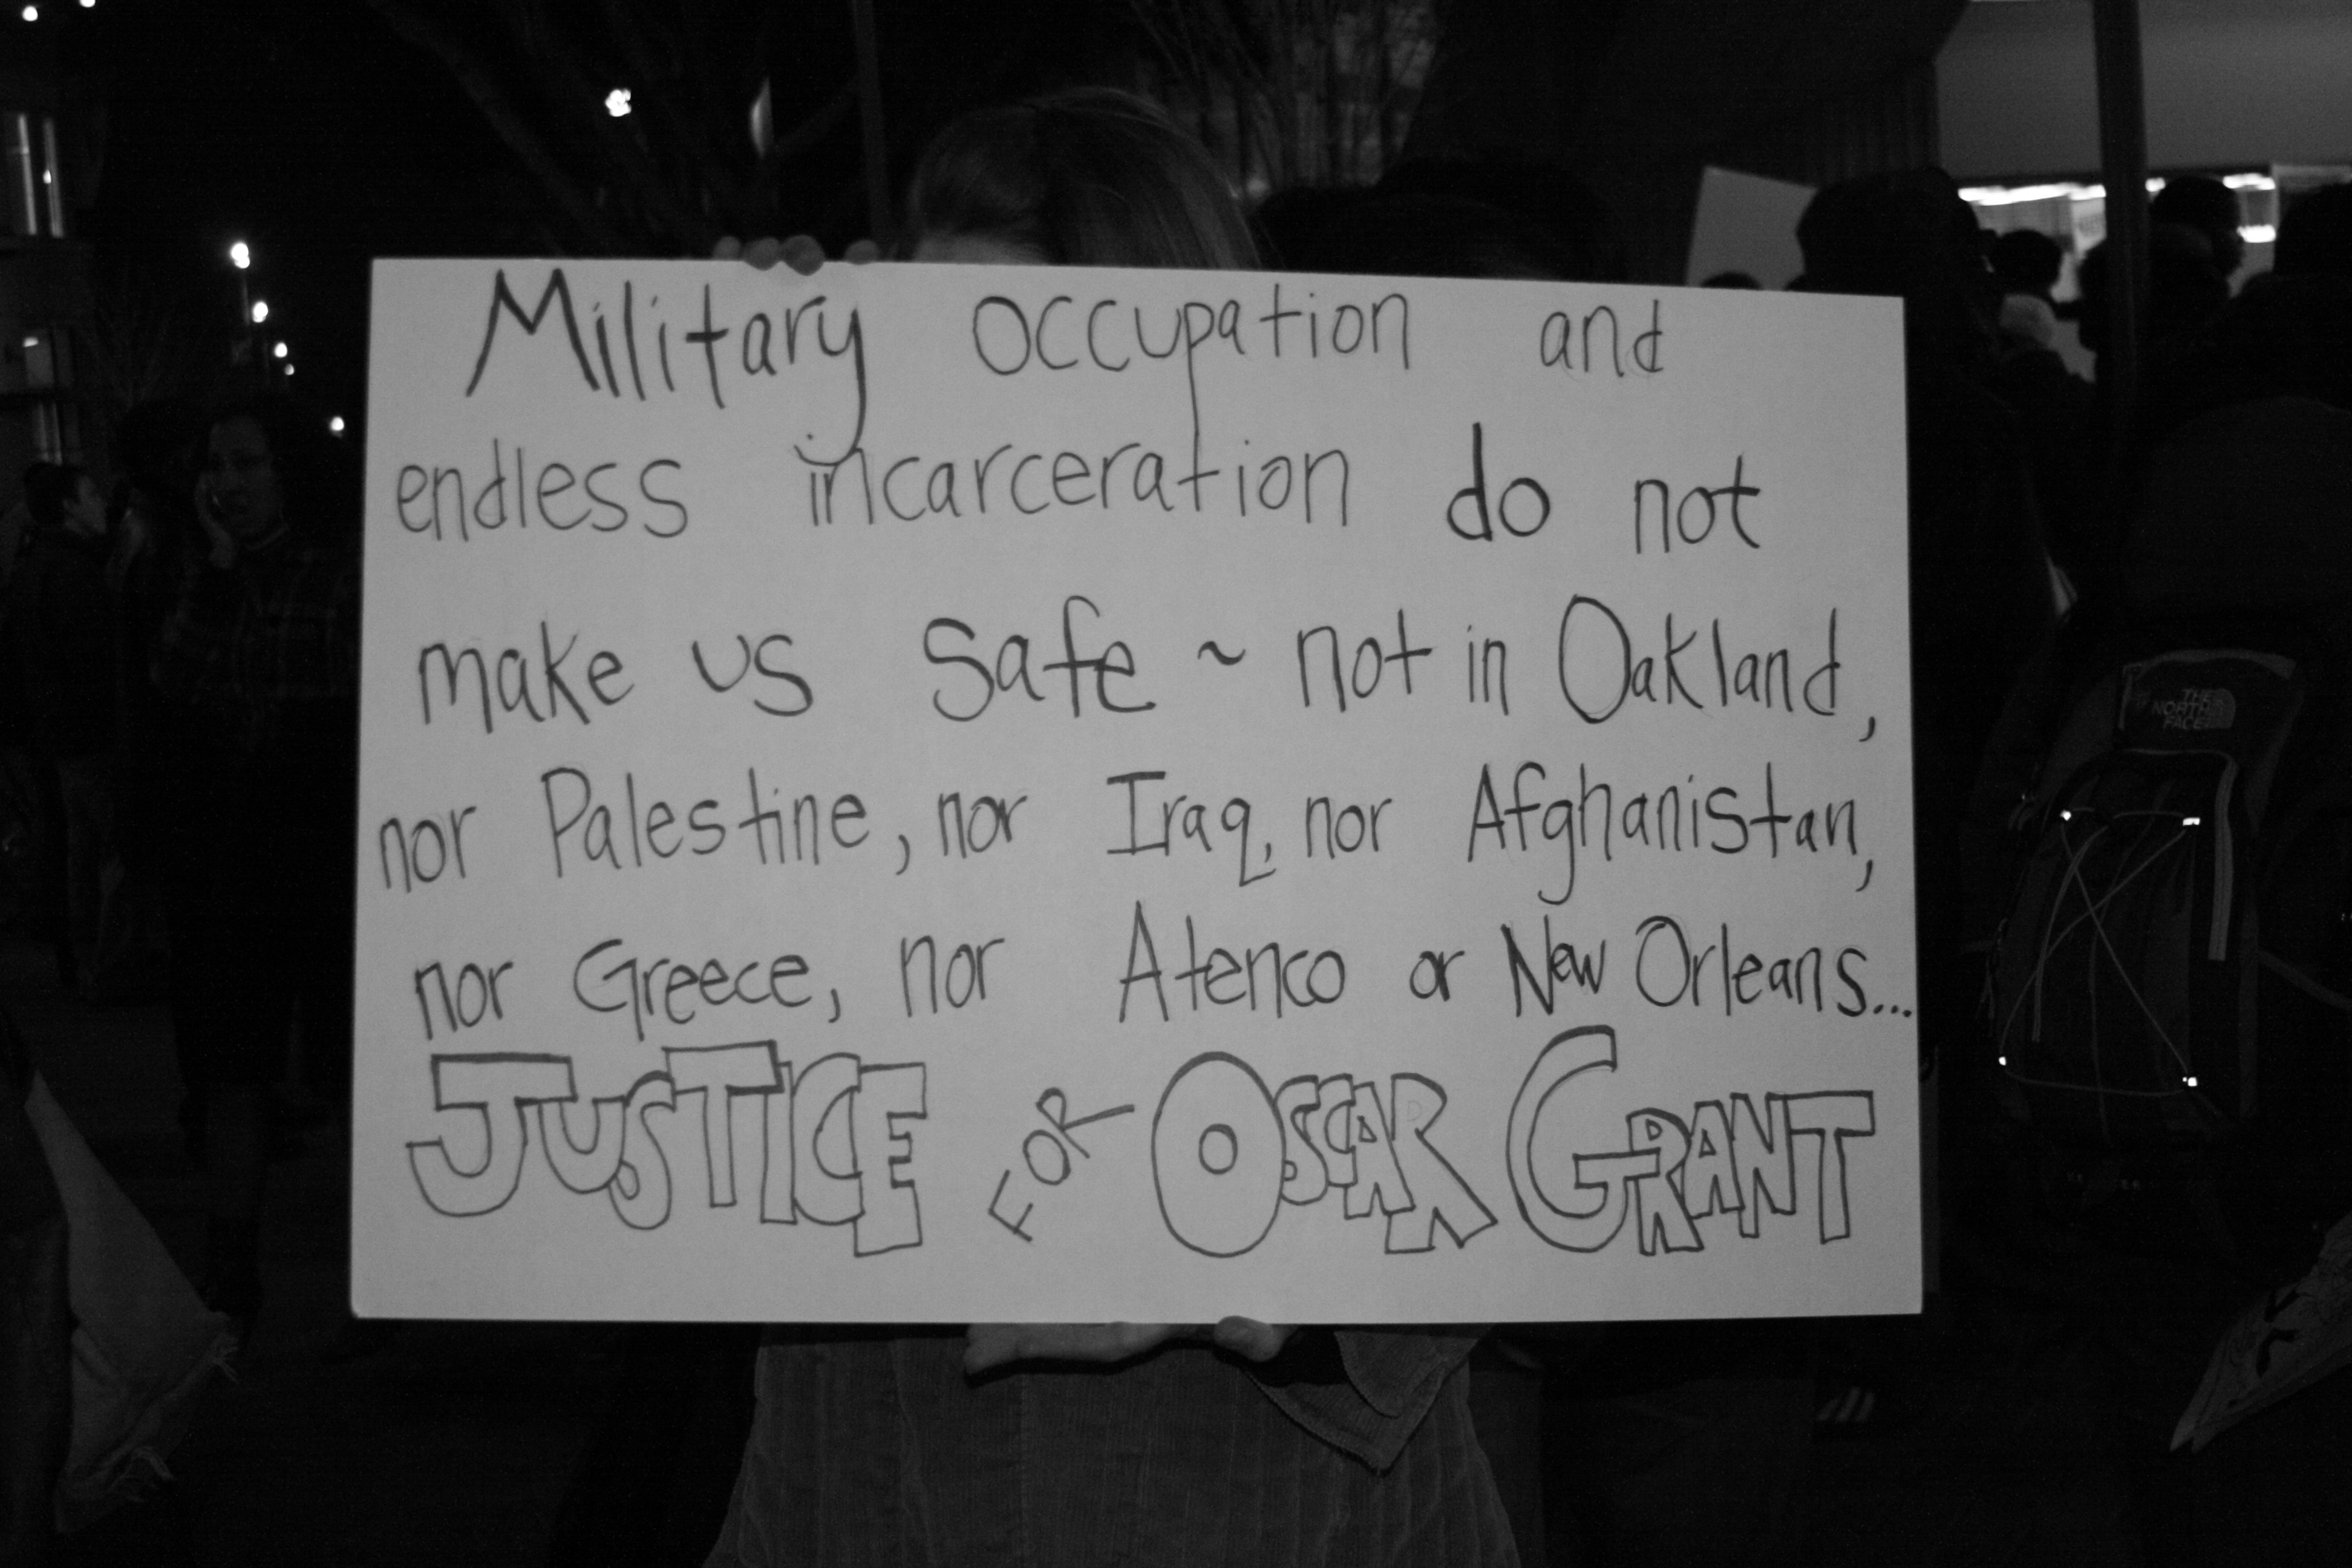 Military occupation and
endless incarceration do not
make us safe ~ not in Oakland,
nor Palestine, nor Iraq, nor Afghanistan,
nor Greece, nor Atenco or New Orleans...
JUSTICE FOR OSCAR GRANT
THE
NORTH
FACE